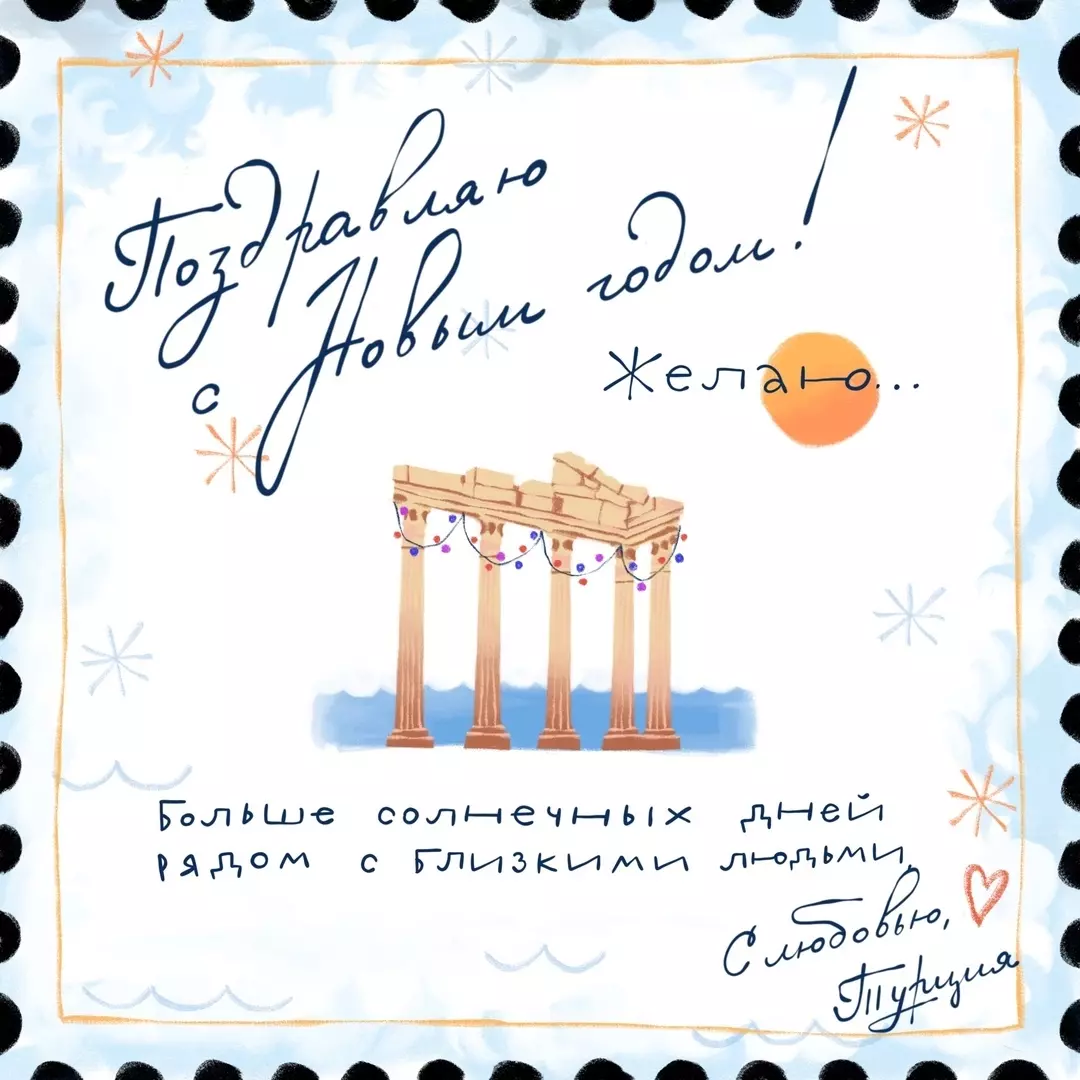 Поздравляю
с Новым годом!
Желаю...
Больше солнечных дней
рядом с близкими людьми,
С любовью,
Турция